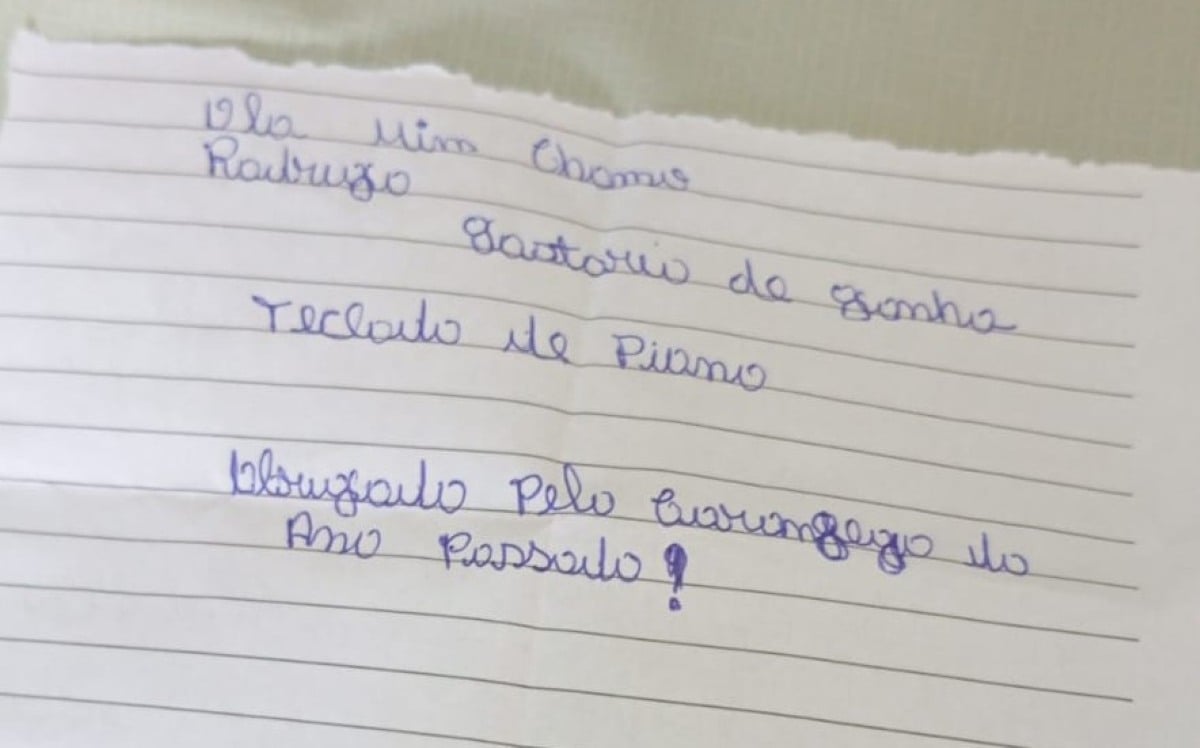 Ola Mim Chamo
Rodrigo
gostario de gonha
Teclado de Piano
Obrigado Pelo Caranguejo do
Ano Passado!